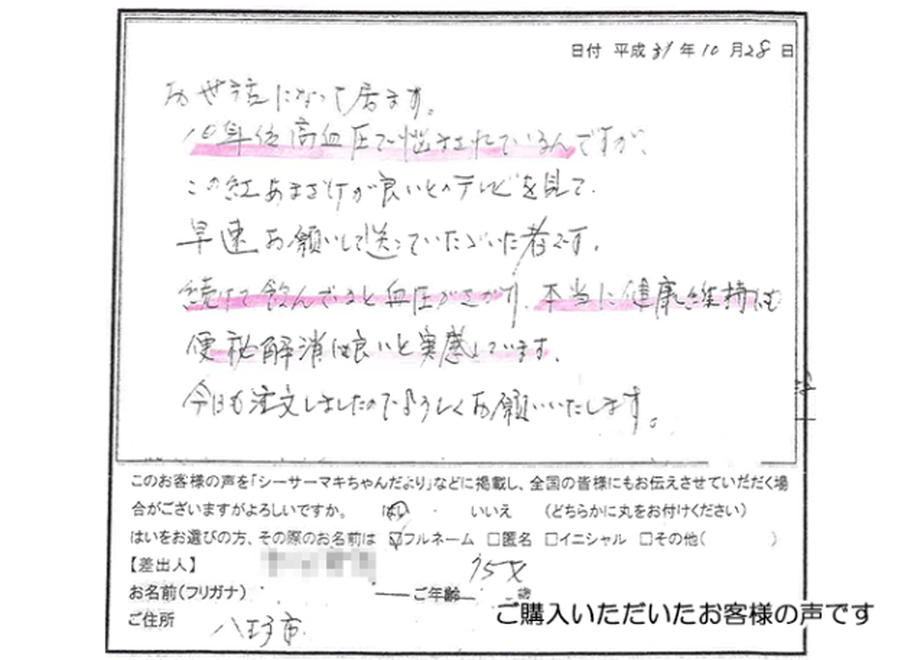 日付 平成31年10月28日
お世話になって居ます。
10年位高血圧で悩まされているんですが、
この紅あまざけが良いとのテレビを見て、
早速お願いして送っていただいた者です。
続けて飲んでると血圧がさがり、本当に健康維持にも
便秘解消に良いと実感しています。
今日も注文しましたのでよろしくお願いいたします。
このお客様の声を「シーサーマキちゃんだより」などに掲載し、全国の皆様にもお伝えさせていだだく場
合がございますがよろしいですか。 はい ・ いいえ (どちらかに丸をお付けください)
はいをお選びの方、その際のお名前は ☑フルネーム □匿名 □イニシャル □その他( )
【差出人】
お名前(フリガナ) ご年齢 75 歳
ご住所 八王子市
ご購入いただいたお客様の声です